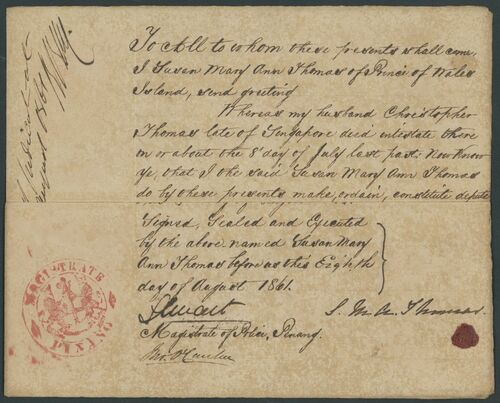 To All to whom these presents shall come,
I Susan Mary Ann Thomas of Prince of Wales
Island, send greeting
Whereas my husband Christopher
Thomas late of Singapore died intestate there
on or about the 8th day of July last past. Now Know
ye, that I the said Susan Mary Ann Thomas
do by these presents make, ordain, constitute depute
Signed, Sealed and Executed
by the above named Susan Mary
Ann Thomas before us this Eighth
day of August 1861.
S. M. A. Thomas.
Magistrate of Police, Penang.
MAGISTRATE
PINANG